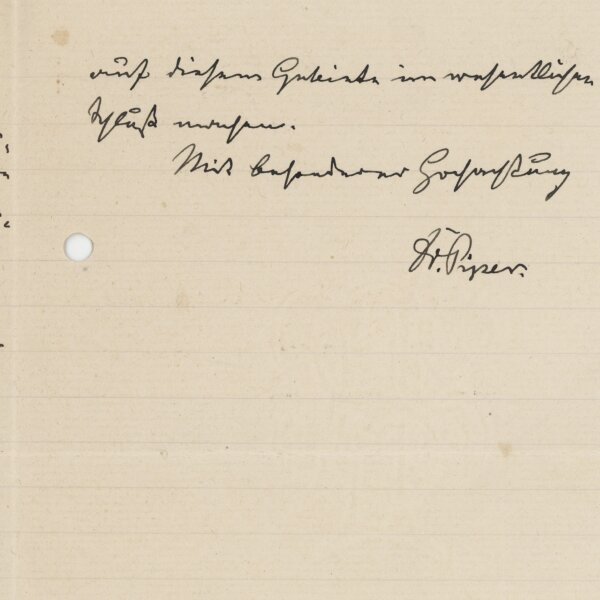 auf diesem Gebiete im wesentlichen
Schluß machen.
Mit besonderer Hochachtung
Dr. Piper.